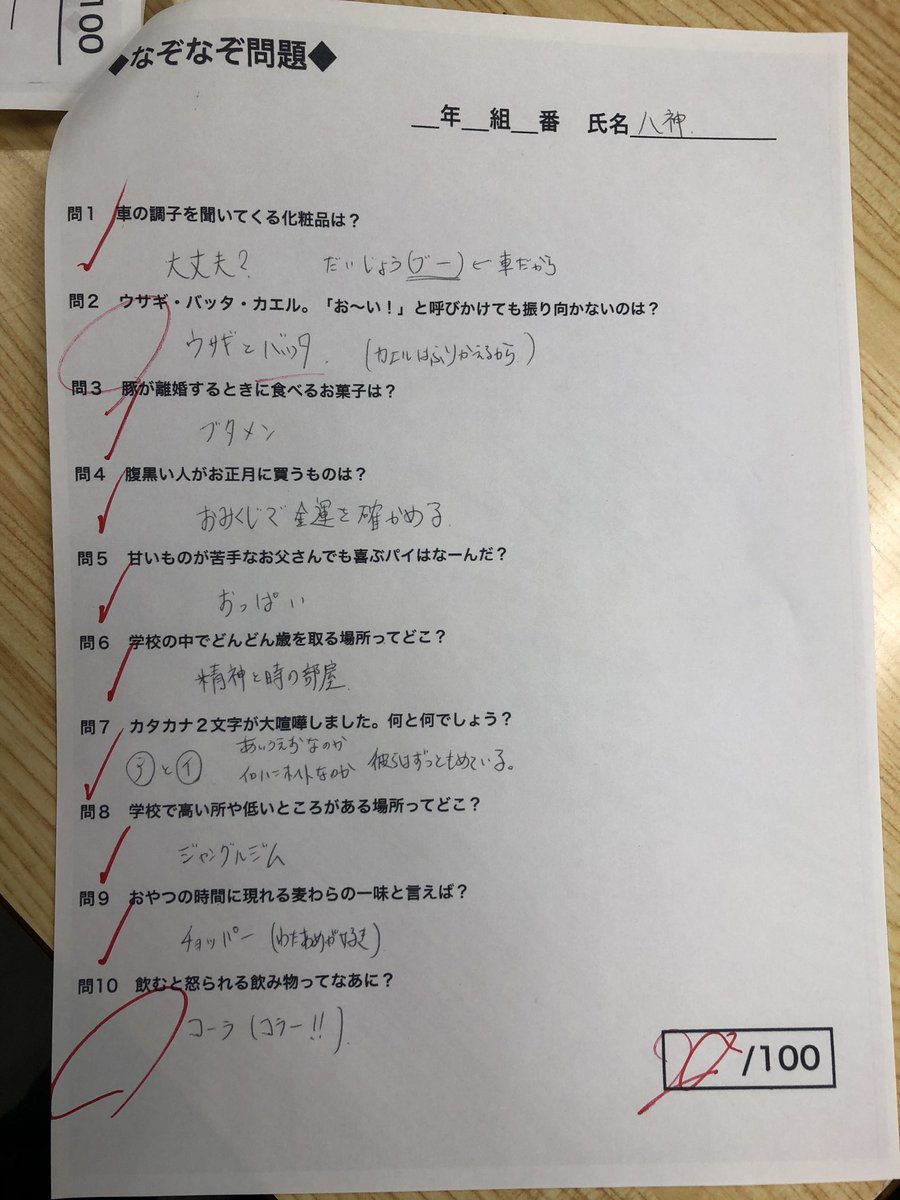 100
◆なぞなぞ問題◆
__年__組__番 氏名 八神.
問1 車の調子を聞いてくる化粧品は？
大丈夫？ だいじょう(ブー) ← 車だから
問2 ウサギ・バッタ・カエル。「お〜い！」と呼びかけても振り向かないのは？
ウサギとバッタ. (カエルはふりかえるから)
問3 豚が離婚するときに食べるお菓子は？
ブタメン
問4 腹黒い人がお正月に買うものは？
おみくじで金運を確かめる.
問5 甘いものが苦手なお父さんでも喜ぶパイはなーんだ？
おっぱい
問6 学校の中でどんどん歳を取る場所ってどこ？
精神と時の部屋.
問7 カタカナ２文字が大喧嘩しました。何と何でしょう？
あいうえおなのか
アとイ イロハニホヘトなのか 彼らはずっともめている。
問8 学校で高い所や低いところがある場所ってどこ？
ジャングルジム
問9 おやつの時間に現れる麦わらの一味と言えば？
チョッパー (わたあめが好き)
問10 飲むと怒られる飲み物ってなあに？
コーラ (コラー!!).
20/100